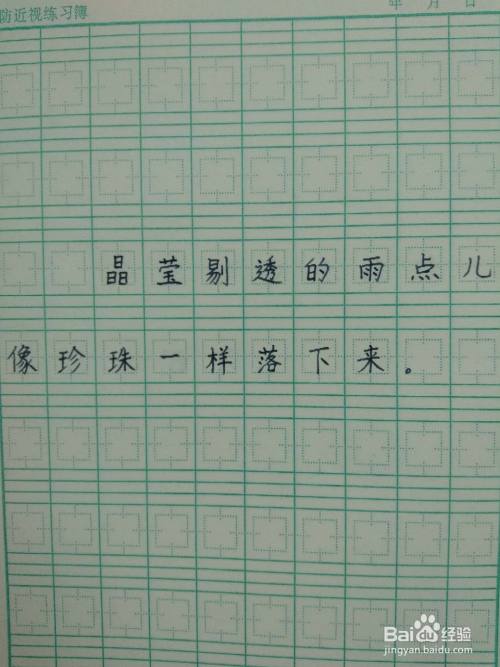 防近视练习簿
年 月 日
晶莹剔透的雨点儿
像珍珠一样落下来。
Bai 经验
jingyan.baidu.com